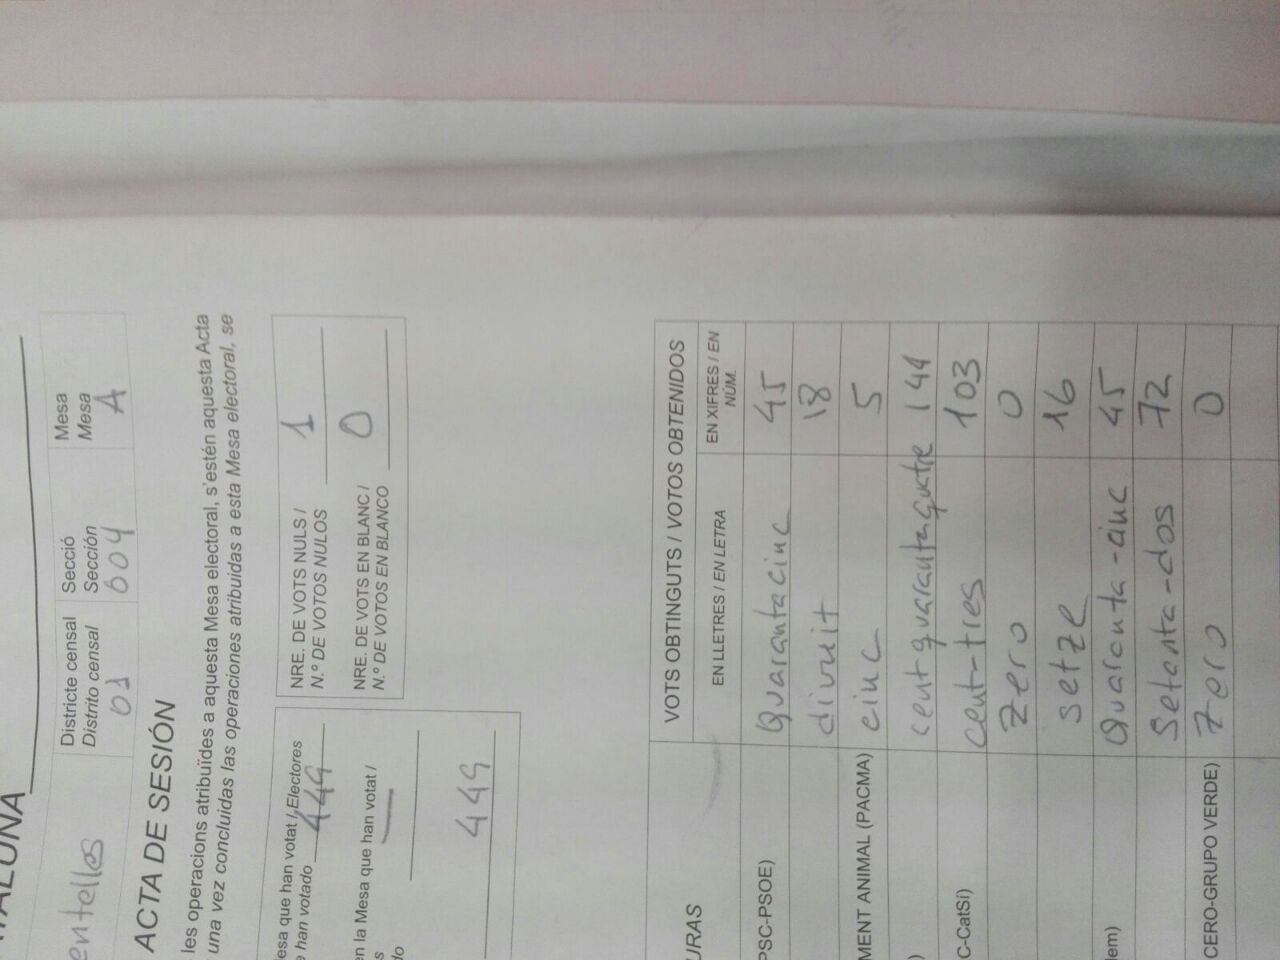 entelles
Districte censal
Distrito censal
01
Secció
Sección
004
Mesa
Mesa
A
ACTA DE SESIÓN
les operacions atribuïdes a aquesta Mesa electoral, s'estén aquesta Acta
una vez concluidas las operaciones atribuidas a esta Mesa electoral, se
esa que han votat / Electores
e han votado 449
en la Mesa que han votat /
449
NRE. DE VOTS NULS /
N.º DE VOTOS NULOS 1
NRE. DE VOTS EN BLANC /
N.º DE VOTOS EN BLANCO 0
URAS
VOTS OBTINGUTS / VOTOS OBTENIDOS
EN LLETRES / EN LETRA
EN XIFRES / EN NÚM.
PSC-PSOE) Quarantacinc 45
divuit 18
MENT ANIMAL (PACMA) cinc 5
) cent quarantaquatre 144
C-CatSí) cent-tres 103
zero 0
setze 16
lem) Quaranta-cinc 45
Setanta-dos 72
CERO-GRUPO VERDE) Zero 0